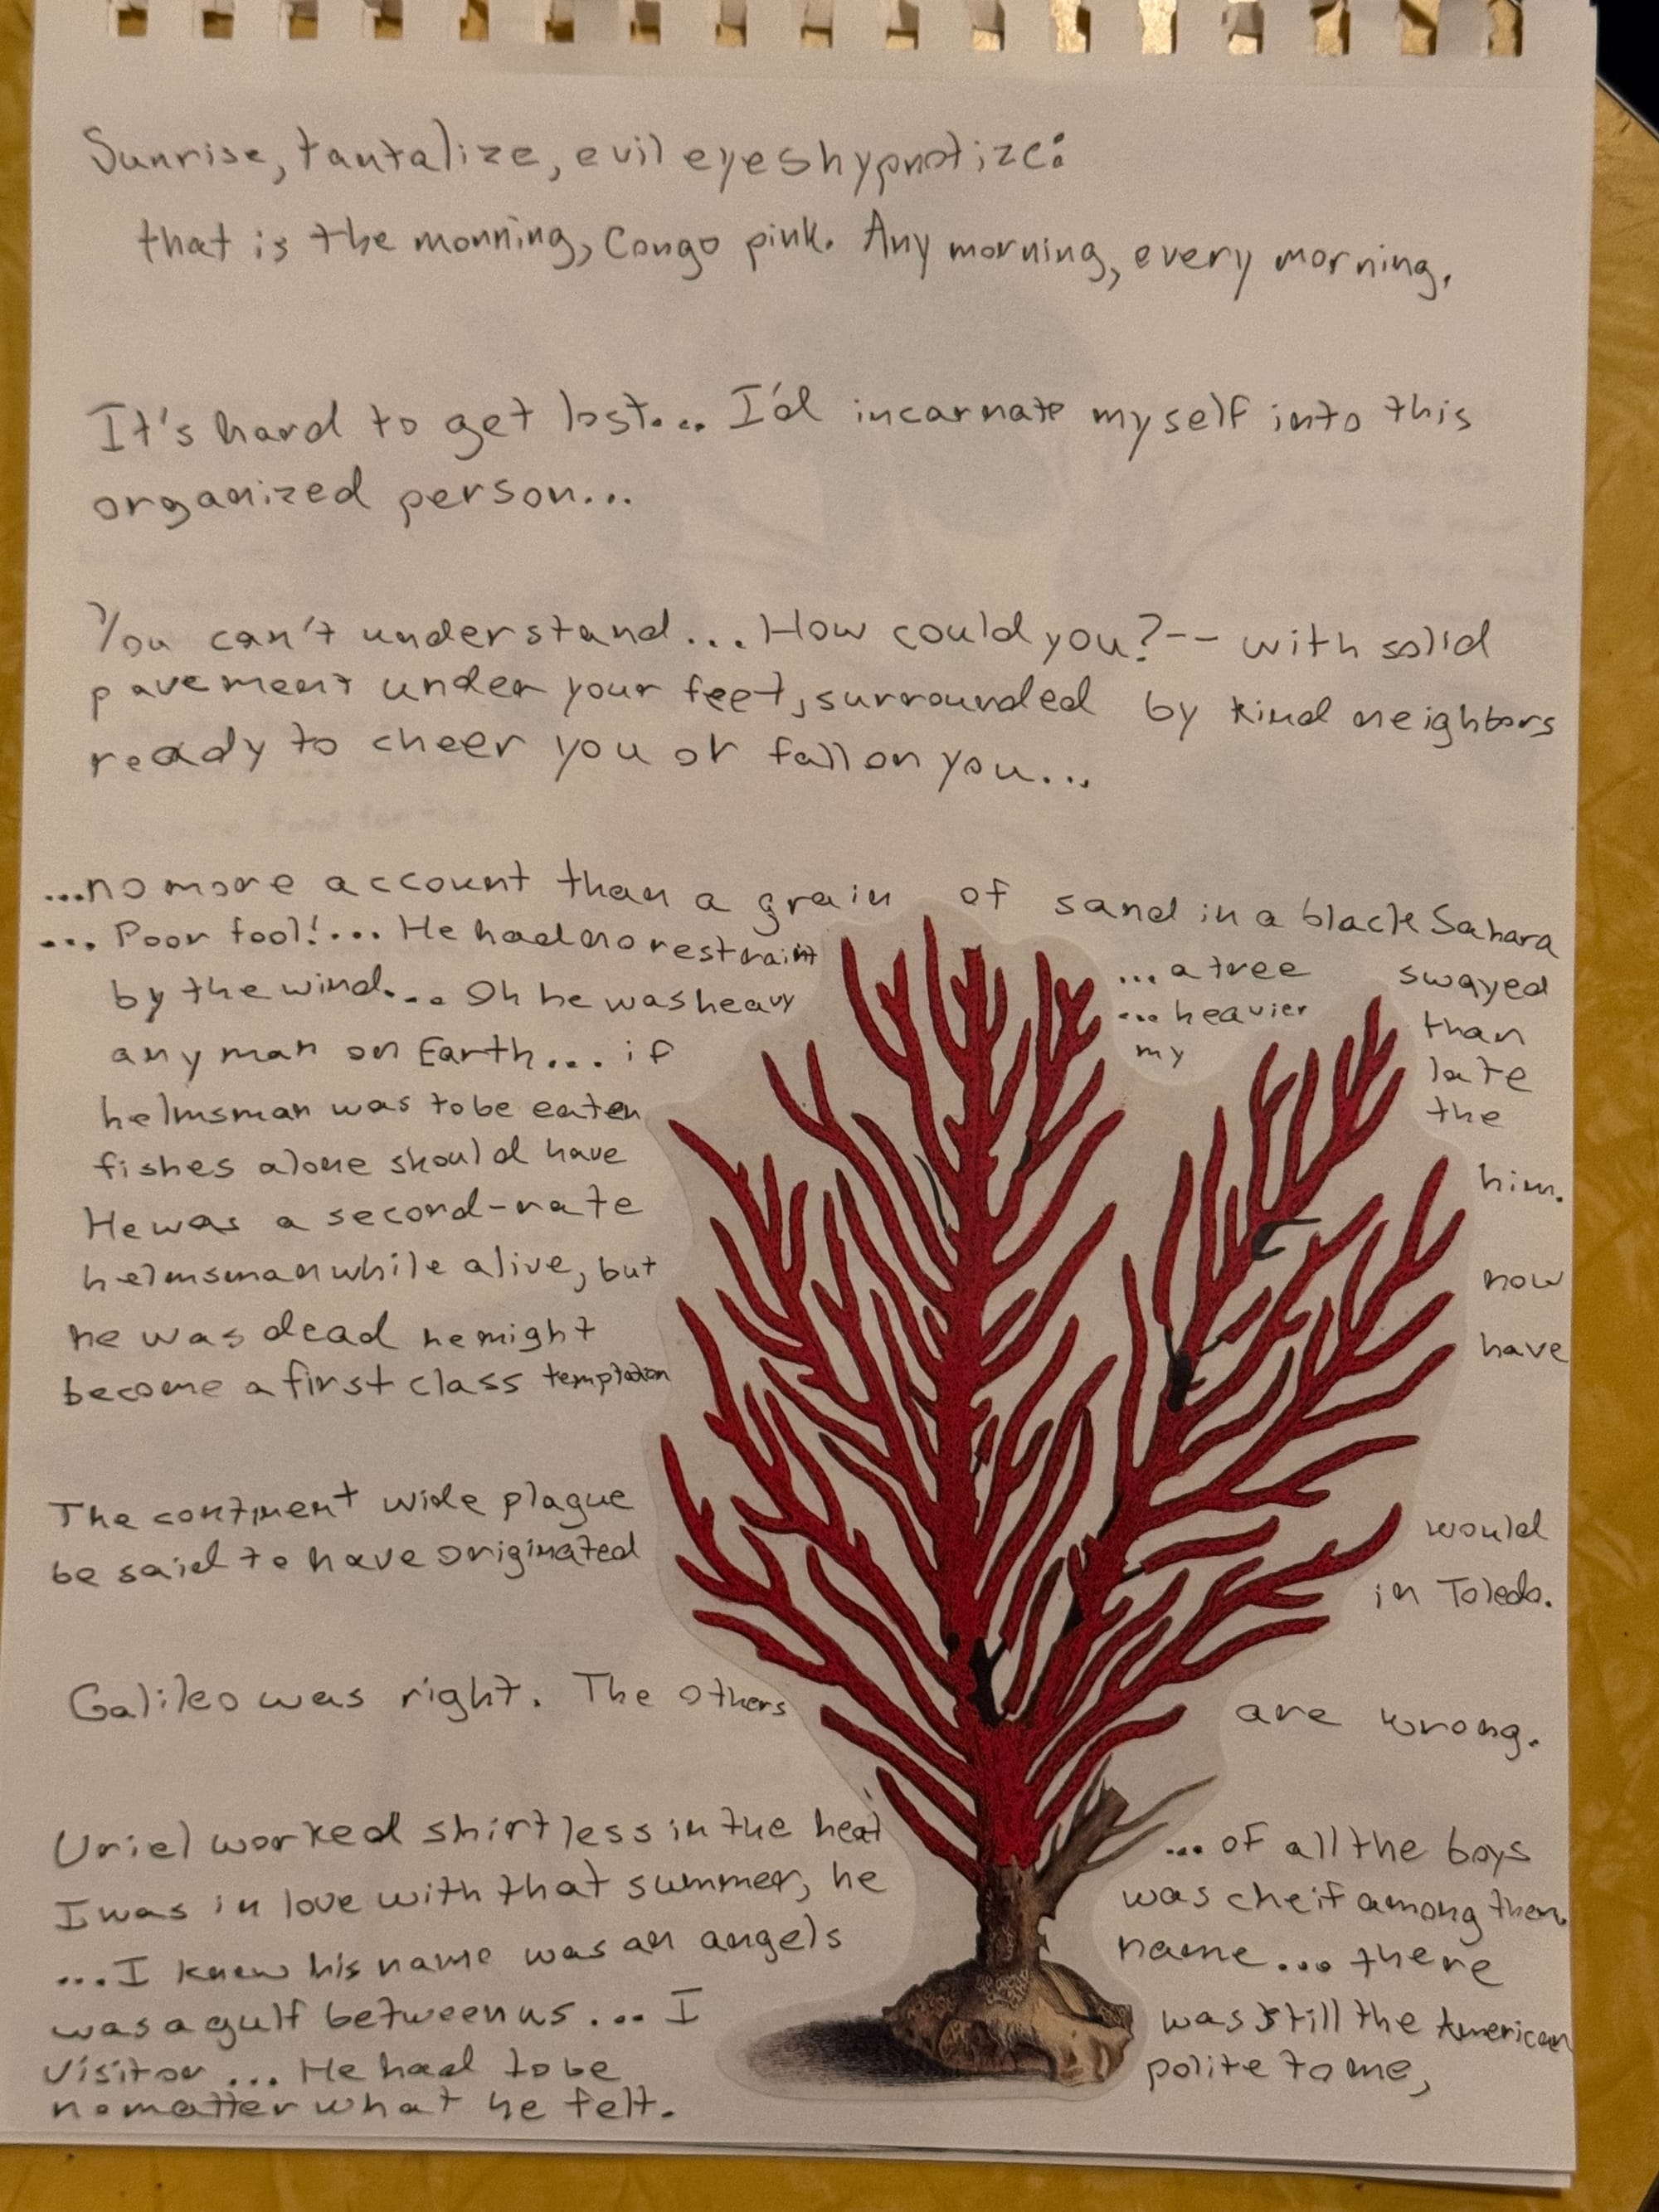 Sunrise, tantalize, evil eyes hypnotize:
that is the morning, Congo pink. Any morning, every morning.
It's hard to get lost... I'd incarnate myself into this
organized person...
You can't understand... How could you?-- with solid
pavement under your feet, surrounded by kind neighbors
ready to cheer you or fall on you...
...no more account than a grain of sand in a black Sahara
... Poor fool!... He had no restraint ... a tree swayed
by the wind... Oh he was heavy ... heavier than
any man on Earth... if my late
helmsman was to be eaten the
fishes alone should have him.
He was a second-rate
helmsman while alive, but now
he was dead he might have
become a first class temptation
The continent wide plague would
be said to have originated in Toledo.
Galileo was right. The others are wrong.
Uriel worked shirtless in the heat ... of all the boys
I was in love with that summer, he was cheif among them.
...I knew his name was an angels name... there
was a gulf between us... I was still the American
visitor ... He had to be polite to me,
no matter what he felt.